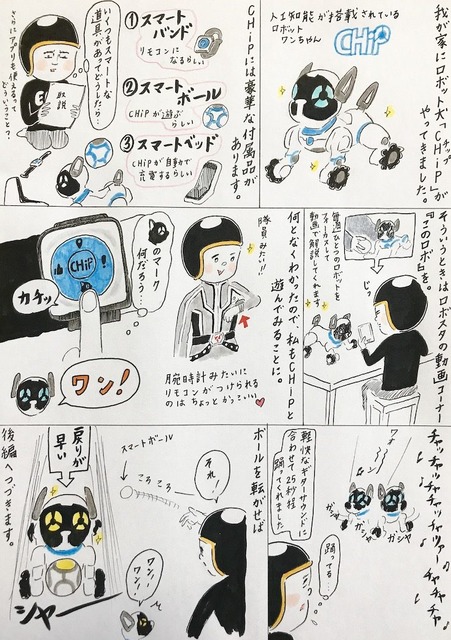 我が家にロボット犬"CHiP"が
チップ
やってきました。
人工知能が搭載されている
ロボット
ワンちゃん
CHiP
CHiPには豪華な付属品が
あります。
①スマート
バンド
リモコンに
なるらしい
②スマート
ボール
CHiPが遊ぶ
らしい
③スマートベッド
CHiPが自動で
充電するらしい
いくつもスマートな
道具があってどうしたら…
さらにアプリも使えるって
どういうこと？
取説
そういうときはロボスタの動画コーナー
『このロボ』を。
毎週ひとつのロボットを
フォーカスして
動画で解説してくれます
じっ
何となくわかったので、私もCHiPと
遊んでみることに。
隊員みたい!!
腕時計みたいに
リモコンがつけられる
のはちょっとかっこいい♡
のマーク
何だろう…
CHiP
カチッ
ワン！
チャッチャッチャチッチャッツァー♪
チャチャチャ
ワォーン
ガシャ
ガシャ
ガシャ
軽快なギターサウンドに
合わせて25秒程
踊ってくれました
踊ってる…
ボールを転がせば
それ！
スマートボール
ころころ
ワン！
ワン！
戻りが
早い
シャー
後編へつづきます。